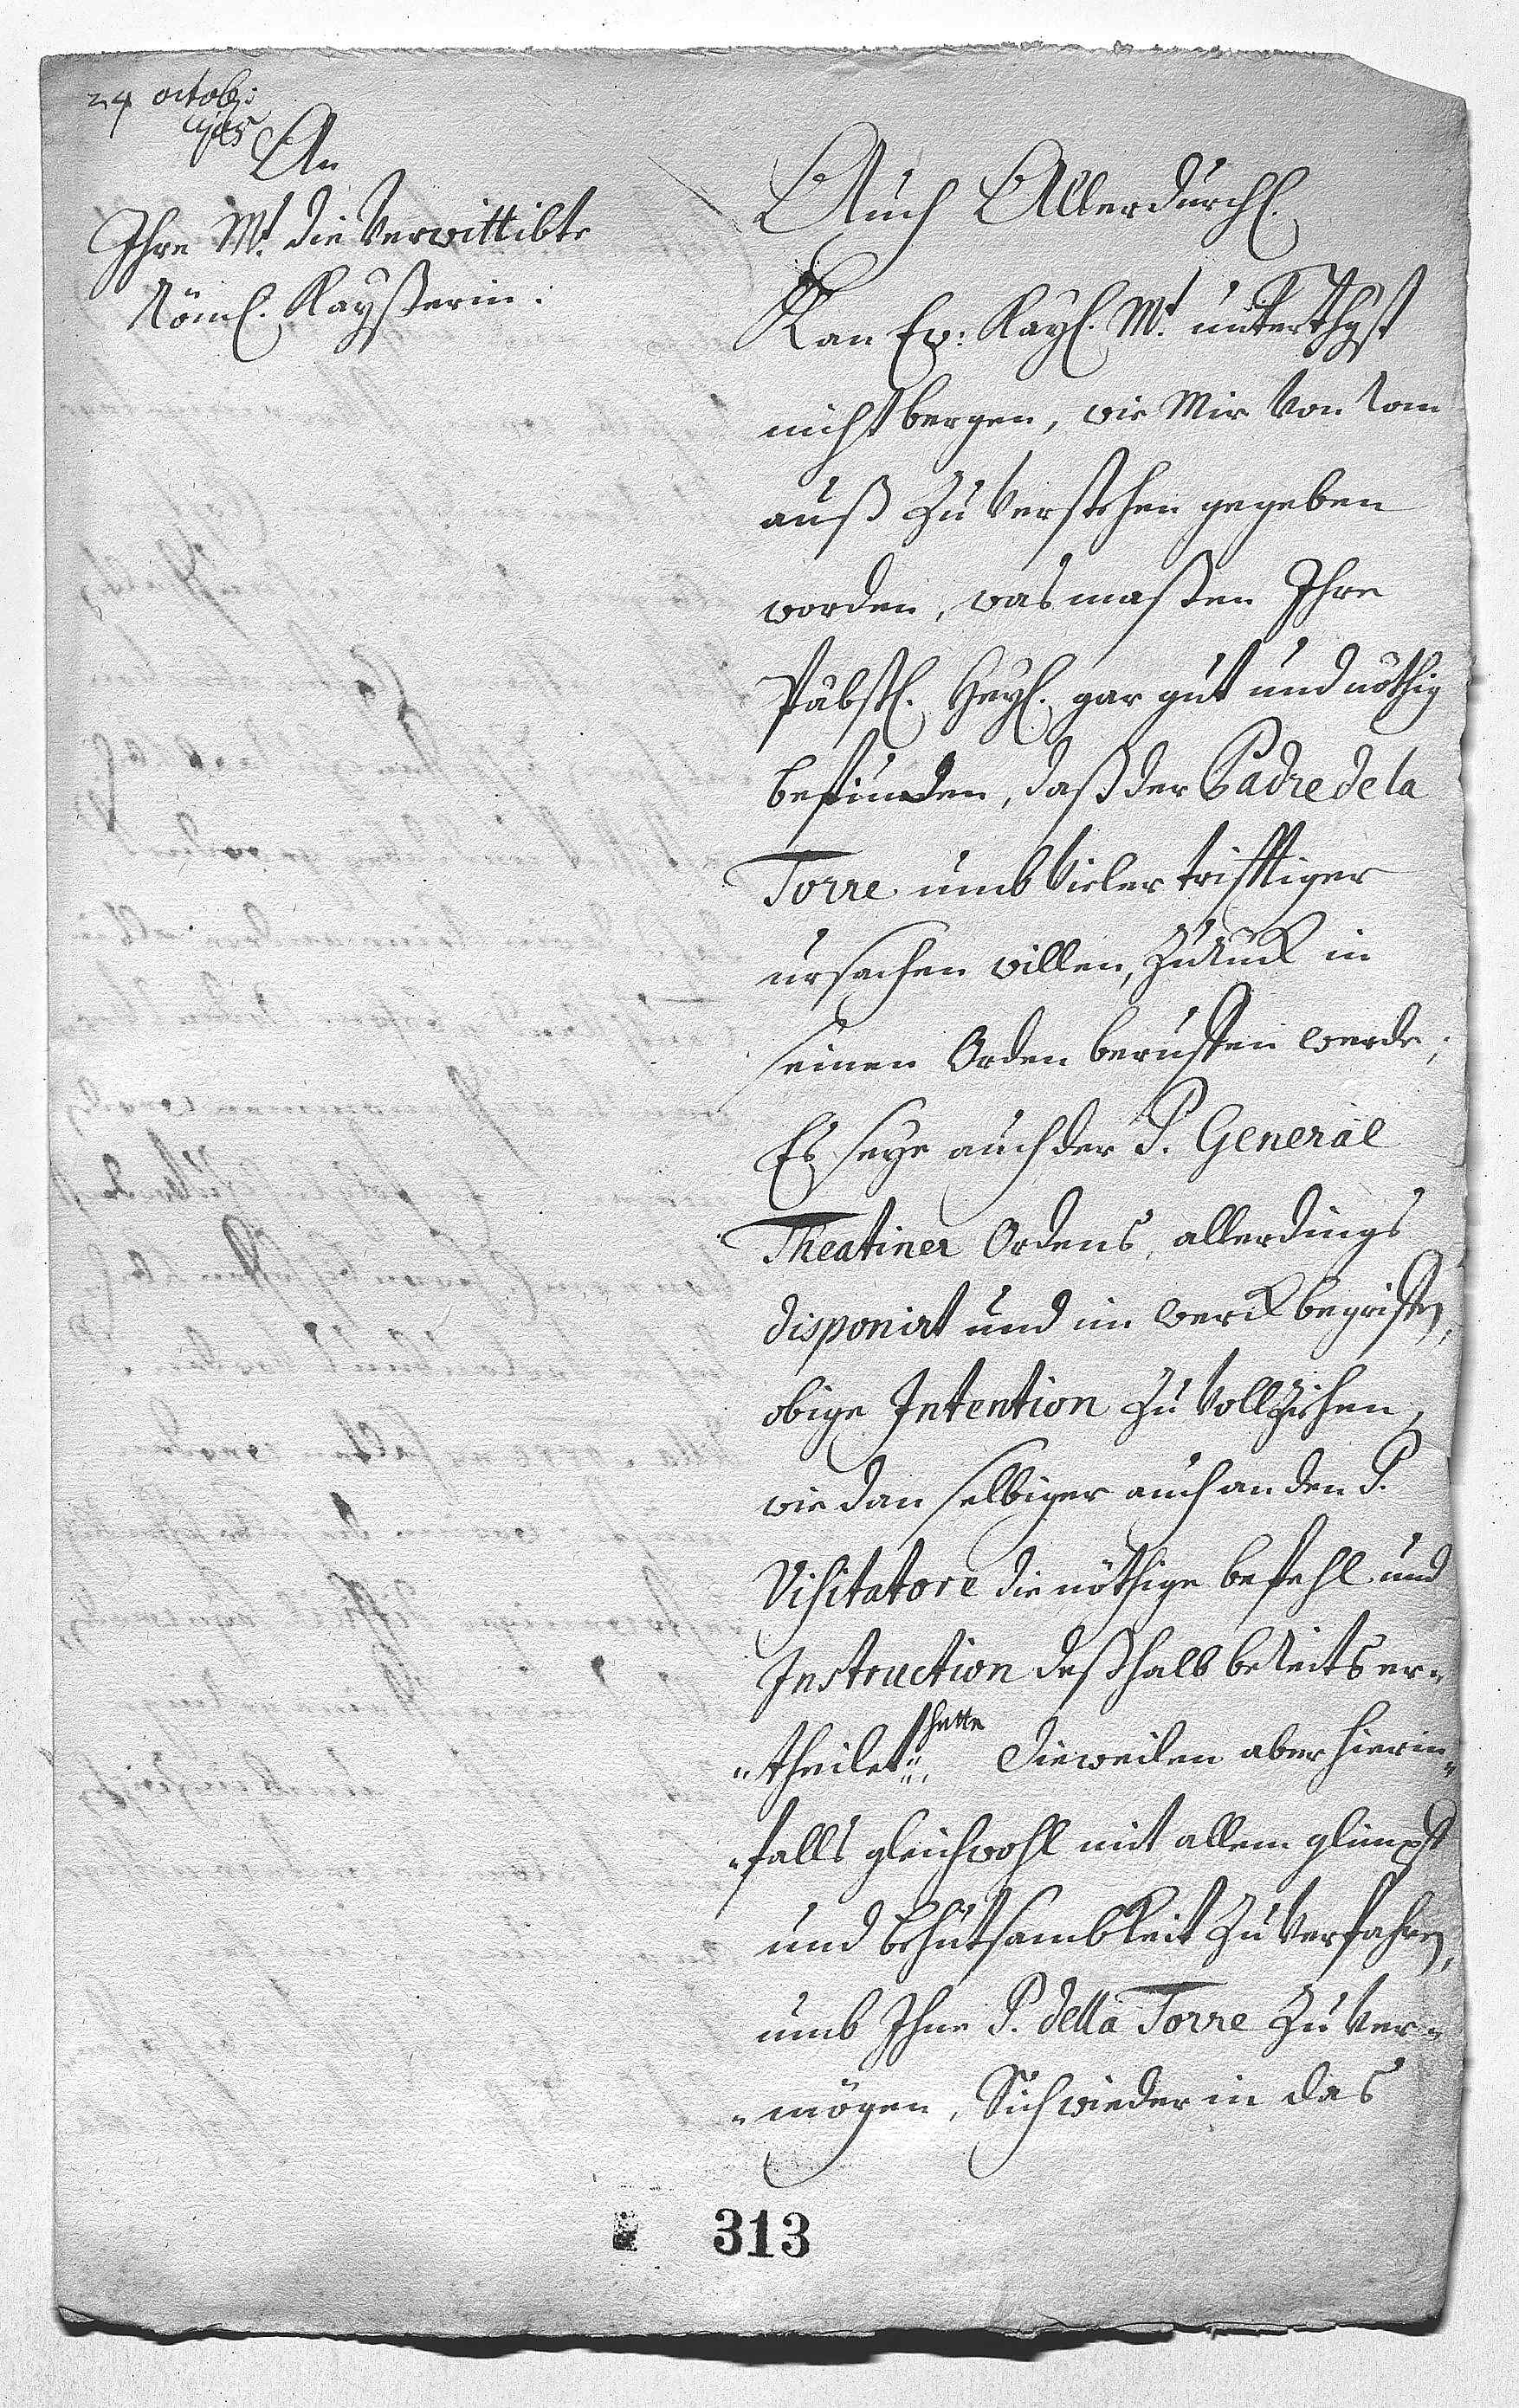 24 octob:
An
Ihre Mt. die Verwittibte
Röml. Kayßerin.
Auch Allerdurchl.
Kan Ew: Kayl. Mt. unterthgst
nicht bergen, wie Mir Von Rom
auß Zu Verstehen gegeben
worden, was maßen Ihre
Päbstl. Heyl. gar gut und nöthig
befunden, daß der Padre de la
Torre umb Vieler trifftiger
ursachen willen, Zuruck in
seinen Orden beruffen werde;
Es seye auch der P. General
Theatiner Ordens, allerdings
disponirt und im werck begriffen,
obige Intention Zu Vollziehen,
wie dan selbiger auch an den P.
Visitatore die nöthige befehl und
Instruction deßhalb bereits er-
theilet hette. Dieweilen aber hierin-
falls gleichwohl mit allem glimpff
und behutsambkeit Zu Verfahren,
umb Ihne P. della Torre Zu Ver-
mögen, Sich wieder in das
313